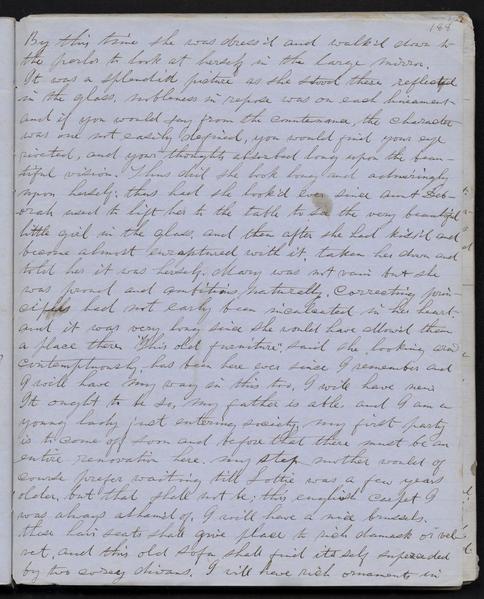 188
By this time she was dress'd and walk'd down to
the parlor to look at herself in the large mirror.
It was a splendid picture as she stood there reflected
in the glass, nobleness in repose was on each lineament
and if you would say from the countenance, the character
was one not easily defined, you would find your eye
riveted, and your thoughts absorbed long upon the beau-
tiful vision. Thus did she look long and admiringly
upon herself; thus had she look'd ever since aunt Deb-
orah used to lift her to the table to see the very beautiful
little girl in the glass, and then after she had kiss'd and
become almost enraptured with it, taken her down and
told her it was herself. Mary was not vain but she
was proud and ambitious naturally. Correcting prin-
ciples had not early been inculcated in her heart
and it was very long since she would have allow'd them
a place there. "This old furniture" said she looking
contemptuously, has been here ever since I remember and
I will have my way in this too, I will have new.
It ought to be so, my father is able and I am a
young lady just entering society, my first party
is to come off soon and before that there must be an
entire renovation here. My step mother would of
course prefer waiting till Lottie was a few years
older, but that shall not be, this english carpet I
was always asham'd of. I will have a nice brussels.
these hair seats shall give place to rich damask or vel-
vet, and this old sofa shall find itself superseded
by two divans. I will have rich ornaments in